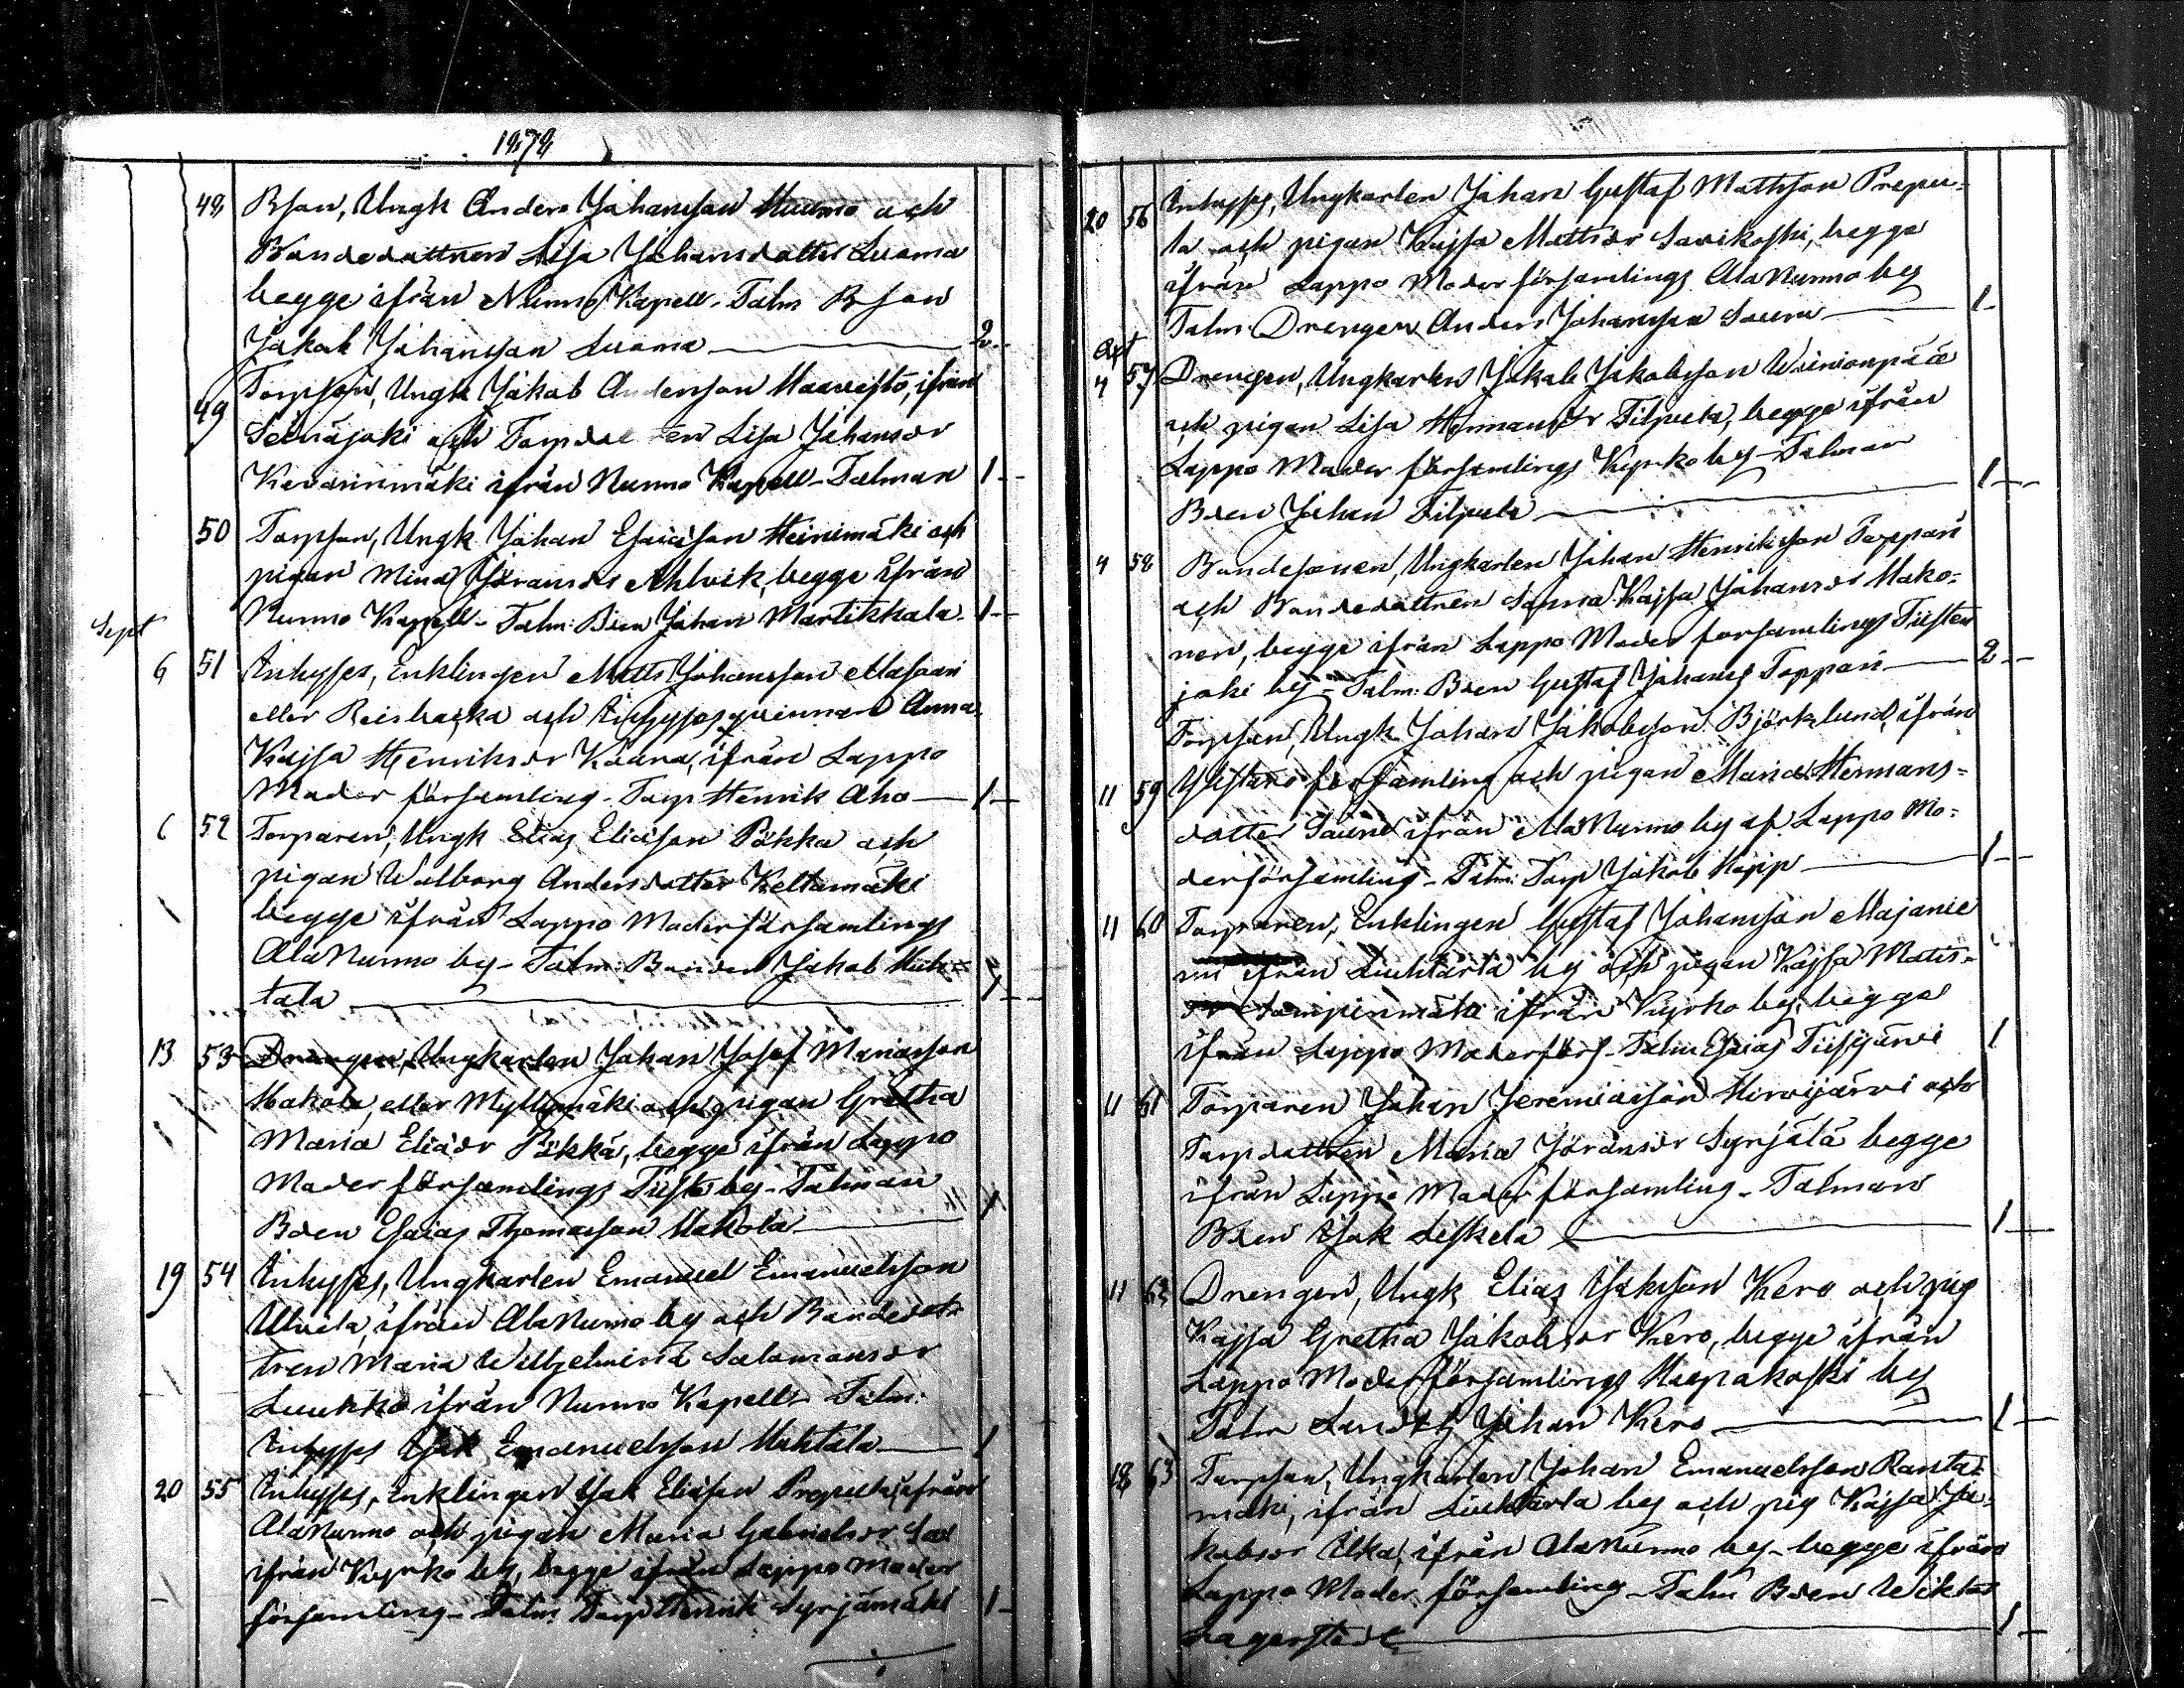 1878
48 Bson, Ungk Anders Johansson Huumo och
Bondedottren Lisa Johansdotter Luoma
begge ifrån Nurmo Kapell - Talm Bson
Jakob Johansson Luoma 2
49 Torpson, Ungk Jakob Andersson Haavisto, ifrån
Seinäjoki och Torpdottren Lisa Johansdr
ifrån Nurmo Kapell - Talman 1
50 Torpson, Ungk Johan Esaiason Heinimäki och
pigan Mina Göransdr Ahlvik, begge ifrån
Nurmo Kapell - Talm: Bden Johan Martikkala 1
Sept
6 51 Inhyses, Enklingen Matts Johansson Alasaari
eller och Inhysesqvinnan Anna
Kajsa Henriksdr Kaara, ifrån Lappo
Moder församling - Torp Henrik Aho 1
6 52 Torparen, Ungk Elias Eliasson Pökkä och
pigan Walborg Andersdotter Keltamäki
begge ifrån Lappo Moderförsamlings
AlaNurmo by - Talm: Bonden Jakob Huh=
tala 1
13 53 Drengen, Ungkarlen Johan Josef Mariasson
Makola, eller Myllymäki och pigan Gretha
Maria Eliasdr Pökkä, begge ifrån Lappo
Moder församlings Tiisten by - Talman
Bden Esaias Thomasson Makola 1
19 54 Inhyses, Ungkarlen Emanuel Emanuelsson
ifrån AlaNurmo by och Bondedot=
tren Maria Wilhelmina Salomonsdr
Luukko ifrån Nurmo Kapell - Talm:
Inhyses Isak Emanuelsson Huhtala 1
20 55 Inhyses, Enklingen Isak Eliasson Prepula ifrån
AlaNurmo och pigan Maria Gabrielsdr
ifrån Kyrko by, begge ifrån Lappo Moder
församling - Talm Torp Henrik Syrjämäki 1
20 56 Inhyses, Ungkarlen Johan Gustaf Mattsson Prepu=
la och pigan Kajsa Mattsdr Savikoski, begge
ifrån Lappo Moder församlings AlaNurmo by
Talm: Drengen Anders Johansson Sauna 1
Oct
4 57 Drengen, Ungkarlen Jakob Jakobsson Wäinionpää
och pigan Lisa Hermansdr Filpula, begge ifrån
Lappo Moder församlings Kyrko by - Talman
Bden Johan Filpula 1
4 58 Bondesonen, Ungkarlen Johan Henriksson Toppari
och Bondedottren Sanna Kajsa Johansdr Mako=
nen, begge ifrån Lappo Moder församlings Tiisten
joki by - Talm: Bden Gustaf Johans Toppari 2
Torpson, Ungk Johan Jakobsson Björklund, ifrån
11 59 Ylistaro församling och pigan Maria Hermans=
dotter Sauna ifrån AlaNurmo by af Lappo Mo=
derförsamling - Talm: Torp Jakob Käpp 1
11 60 Torparen, Enklingen Gustaf Johansson Majanie
mi ifrån Liuhtarla by och pigan Kajsa Matts=
dr ifrån Kyrko by, begge
ifrån Lappo Moderförs - Talm Esaias Tiisijärvi 1
11 61 Torparen Johan Jeremiasson Hirvijärvi och
Torpdottren Maria Göransdr Syrjälä begge
ifrån Lappo Moder församling - Talman
Bden Isak Leskelä 1
11 62 Drengen, Ungk Elias Isaksson Kero och pig
Kajsa Gretha Jakobsdr Kero, begge ifrån
Lappo Moder församlings Haapakoski by
Talm Johan Kero 1
18 63 Torpson, Ungkarlen Johan Emanuelsson Ranta=
mäki, ifrån Liuhtarla by och pig Kajsa Ja=
kobsdr Ilka, ifrån AlaNurmo by - begge ifrån
Lappo Moder församling - Talm Bden Wiktor
Lagerstedt 1